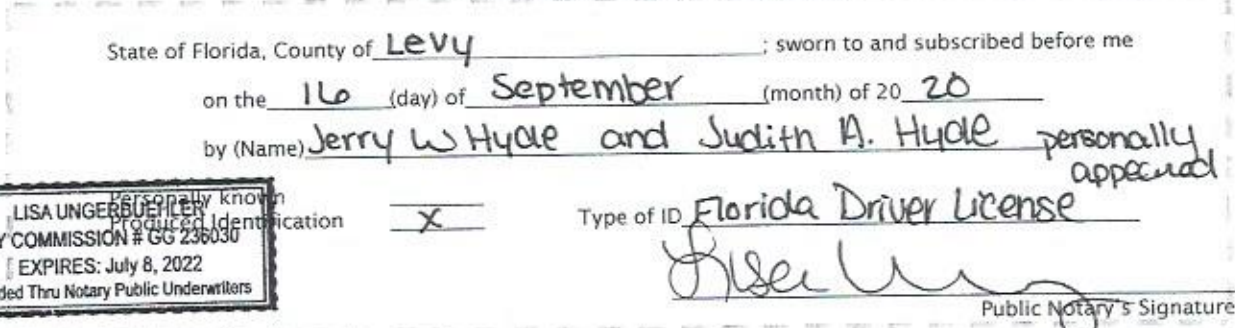 State of Florida, County of Levy ; sworn to and subscribed before me
on the 16 (day) of September (month) of 20 20
by (Name) Jerry W Hyde and Judith A. Hyde personally
appeared
Personally known
Produced Identification X Type of ID Florida Driver License
LISA UNGERBUEHLER
Y COMMISSION # GG 236030
EXPIRES: July 8, 2022
ded Thru Notary Public Underwriters
Public Notary's Signature